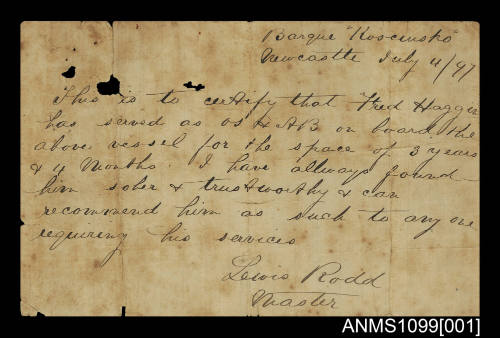 Barque "Koscinsko"
Newcastle July 4/97
This is to certify that Fred Hagger
has served as OS & AB on board the
above vessel for the space of 3 years
& 4 Months. I have allways found
him sober & trustworthy & can
recommend him as such to any one
requiring his services
Lewis Rodd
Master
ANMS1099[001]